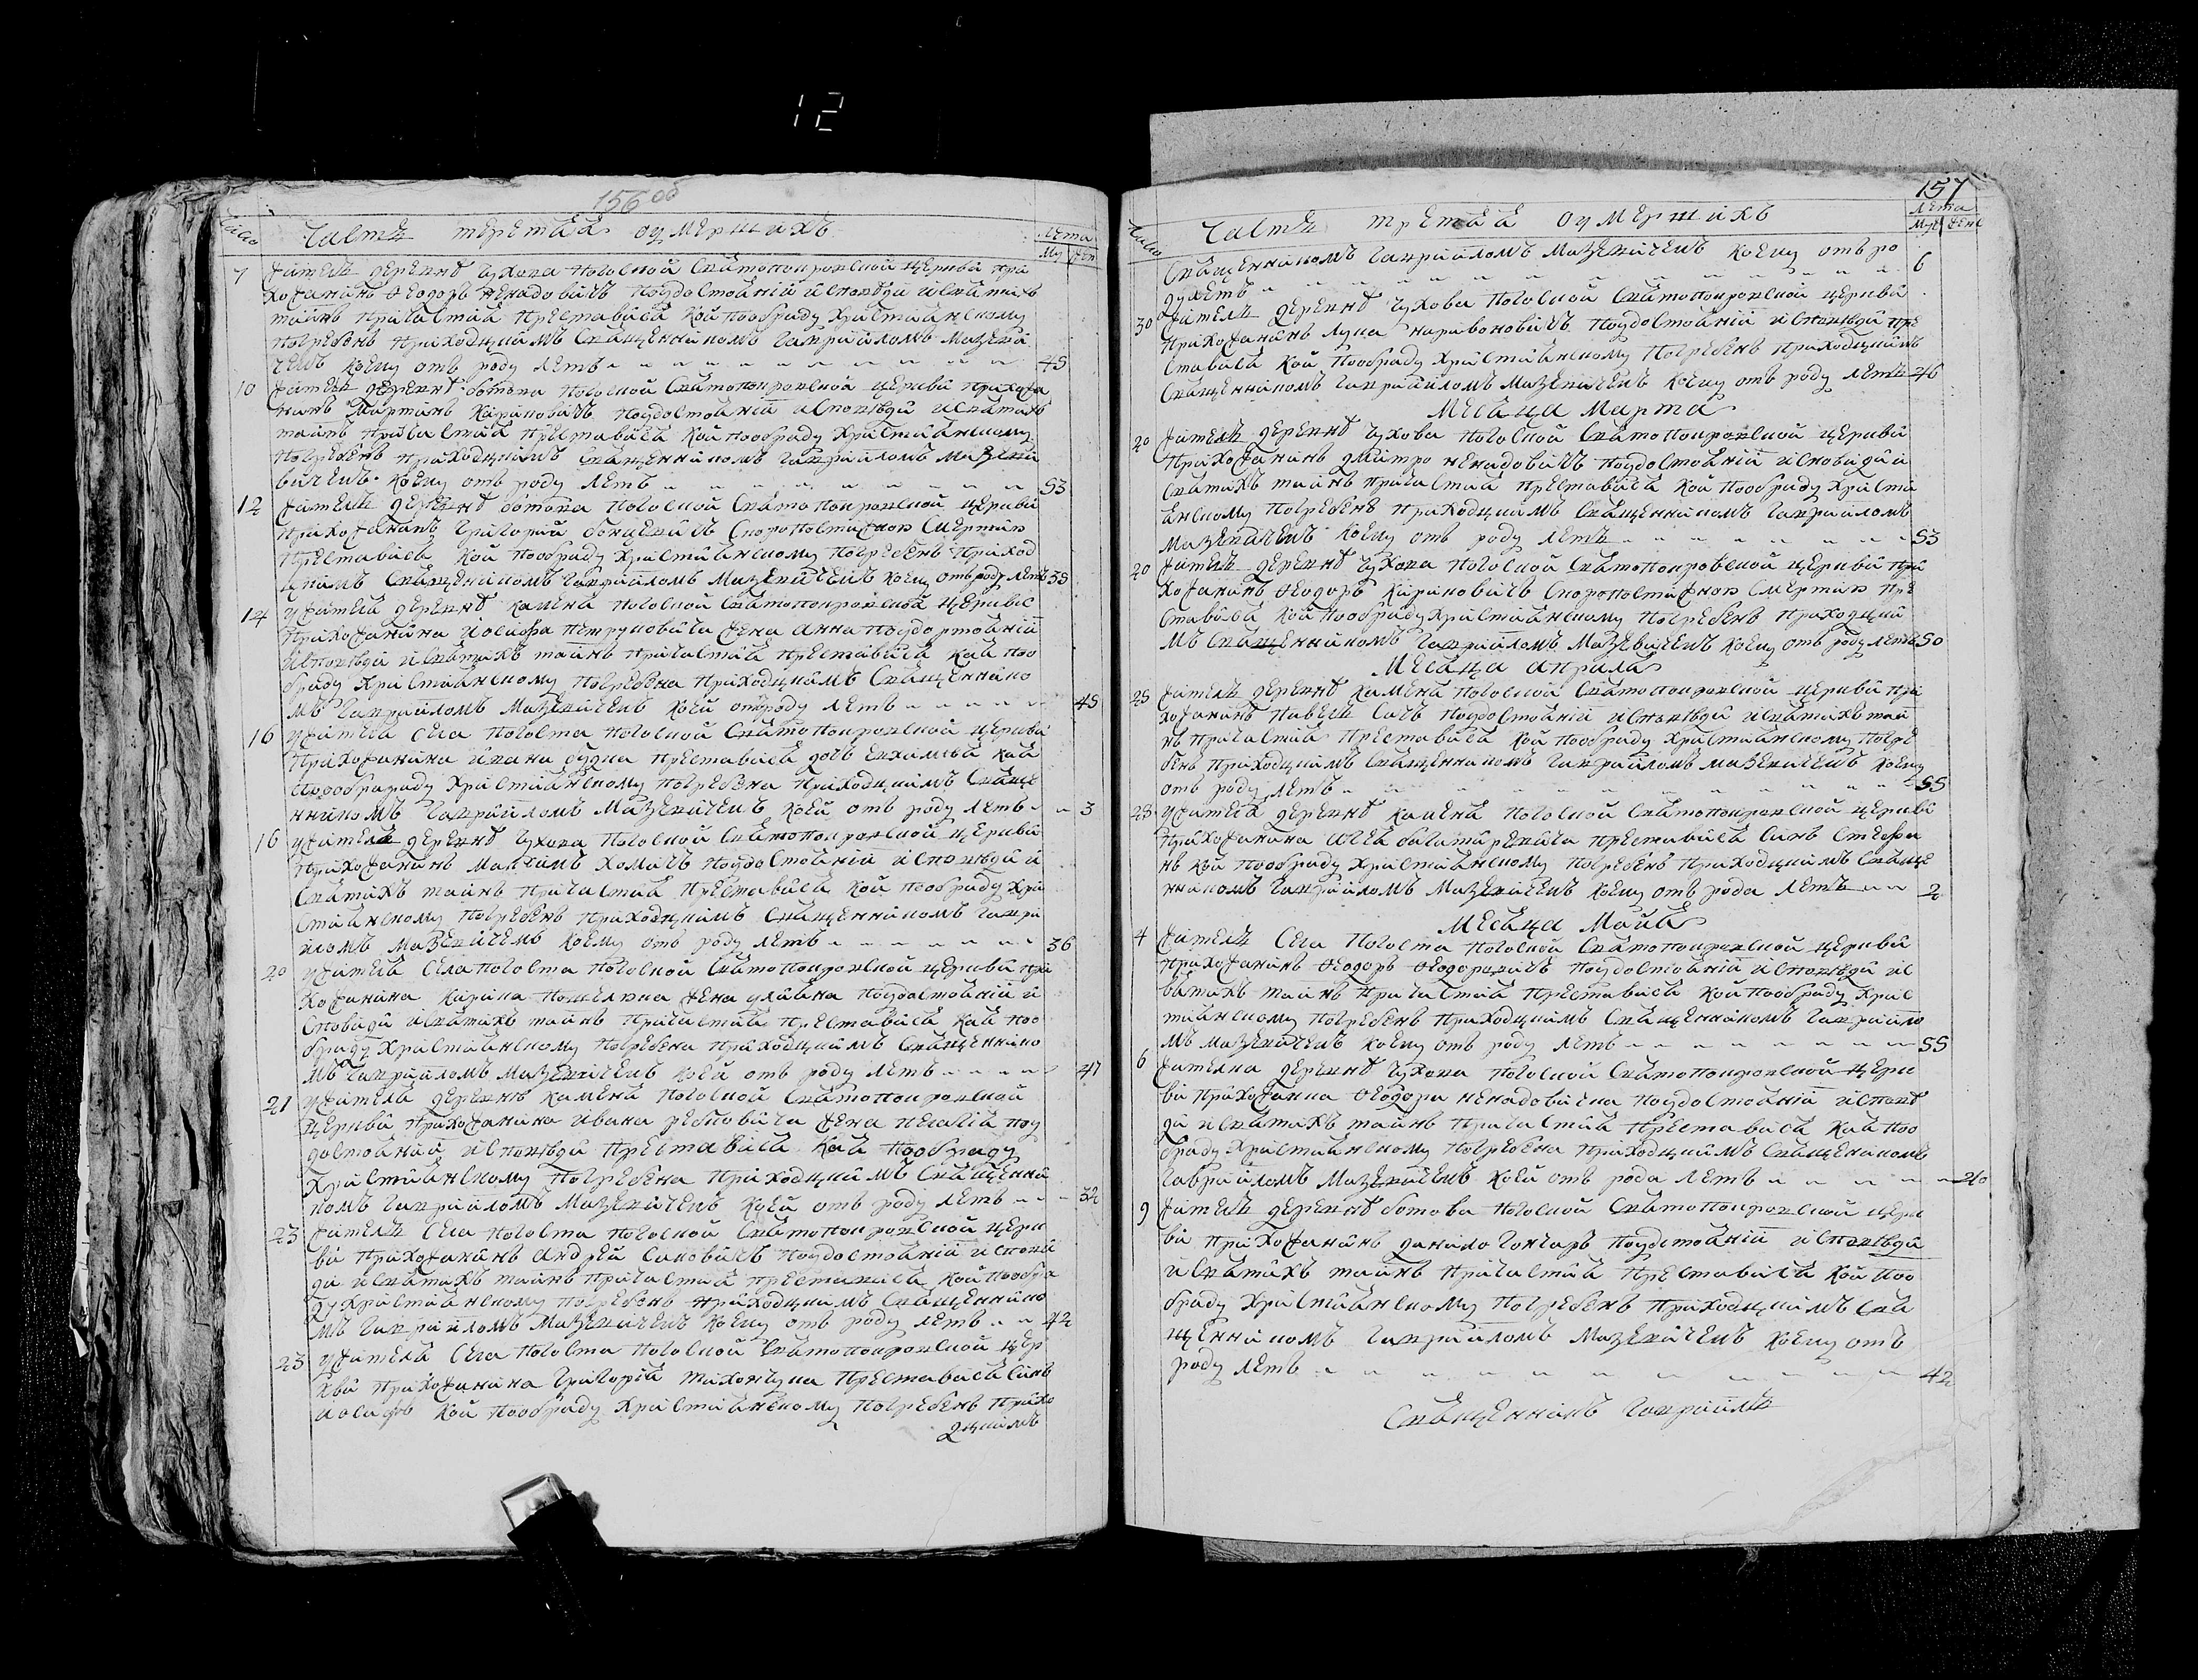 12
156 об
Число Часть третяя оумершихъ Лета
Му Жен
7 Жителъ деревнѣ Чухова погоской Святопокровской церкви при
хожанинъ Ѳеодоръ Ненадовичъ поудостоянiи исповѣди исвятихъ
таинъ причастия преставися кой пообряду християнскому
погребенъ приходцкимъ священникомъ Гаврииломъ Мазеви
чемъ коему отъ роду летъ 45
10 Жителъ деревнѣ Ботова погоской Святопокровской церкви прихожа
нинъ Мартинъ Кириновичъ поудостоянiи исповѣди исвятихъ
таинъ причастия преставися кой пообряду християнскому
погребенъ приходцкимъ священникомъ Гаврииломъ Мазеки
вичемъ коему отъ роду летъ 53
12 Жителъ деревнѣ Ботова погоской Святопокровской церкви
прихожанинъ Григорий скоропостижною смертию
преставися кой пообряду християнскому погребенъ приход
цкимъ священикомъ Гаврииломъ Мазевичемъ коему отъ роду летъ 35
14 Ужителя деревнѣ Каменя погоской Святопокровской церквѣ
прихожанина Иосифа Петруковича жена Анна поудостоянiи
исповѣди исвятихъ таинъ причастия преставися кая поо
бряду християнскому погребена приходцкимъ священнико
мъ Гаврииломъ Мазевичемъ коей отроду летъ 45
16 Ужителя села Погоста погоской Святопокровской церкви
прихожанина Ивана Будка преставися дочъ кая
пообраряду християнскому погребена приходцкимъ свяще
нникомъ Гаврииломъ Мазевичемъ коей отъ роду летъ 3
16 Ужителя деревнѣ Чухова погоской Святопокровской церкви
прихожанинъ Максимъ Хомичъ поудостоянiи исповѣди и
святихъ таинъ причастия преставися кой пообряду хри
стиянскому погребенъ приходцкимъ священникомъ Гаври
иломъ Мазевичемъ коему отъ роду летъ 36
20 Ужителя села Погоста погоской Святопокровской церкви при
хожанина Кирика жена Улияна поудостоянiи и
споведи исвятихъ таинъ причастия преставися кая поо
бряду християнскому погребена приходцкимъ священнико
мъ Гаврииломъ Мазевичемъ коей отъ роду летъ 47
21 Ужителя деревнѣ Каменя погоской Святопокровской
церкви прихожанина Ивана жена Пелагия поу
достоянии исповѣди преставися кая пообряду
християнскому погребена приходцкимъ священни
комъ Гаврииломъ Мазевичемъ коей отъ роду летъ 32
23 Жителъ села Погоста погоской Святопокровской церк
ви прихожанинъ Андрей Саковичъ поудостоянiи исповѣ
ди исвятихъ таинъ причастия преставися кой пообря
ду християнскому погребенъ приходцкимъ священнико
мъ Гаврииломъ Мазевичемъ коему отъ роду летъ 42
23 Ужителя села Погоста погоской Святопокровской цер
кви прихожанина Григория преставися синъ
Иосифъ кой пообряду християнскому погребенъ прихо
дцкимъ
157
Число Часть третяя оумершихъ Лета
Му Жен
священникомъ Гаврииломъ Мазевичемъ коему отъ ро
ду летъ 6
30 Жителъ деревнѣ Чухова погоской Святопокровской церкви
прихожанинъ Лука поудостоянiи исповѣди пре
ставися кой пообряду християнскому погребенъ приходцкимъ
священникомъ Гаврииломъ Мазевичемъ коему отъ роду летъ 46
Месяца Марта
20 Жителъ деревнѣ Чухова погоской Святопокровской церкви
прихожанинъ Дмитро Ненадовичъ поудостоянiи исповиди и
святихъ таинъ причастия преставися кой пообряду христи
янскому погребенъ приходцкимъ священникомъ Гаврииломъ
Мазевичемъ коему отъ роду летъ 53
20 Жителъ деревнѣ Чухова погоской Святопокровской церкви при
хожанинъ Ѳеодоръ Кириновичъ скоропостижною смертию пре
ставися кой пообряду християнскому погребенъ приходцки
мъ священникомъ Гаврииломъ Мазевичемъ коему отъ роду летъ 50
Месяца Априля
25 Жителъ деревнѣ Каменя погоской Святопокровской церкви при
хожанинъ Павелъ Сачъ поудостоянiи исповѣди исвятихъ таи
нъ причастия преставися кой пообряду християнскому погре
бенъ приходцкимъ священникомъ Гаврииломъ Мазевичемъ коему
отъ роду летъ 55
28 Ужителя деревнѣ Каменя погоской Святопокровской церкви
прихожанина преставися синъ Стефа
нъ кой пообряду християнскому погребенъ приходцкимъ свяще
нникомъ Гаврииломъ Мазевичемъ коему отъ рода летъ 2
Месяца Майя
4 Жителъ села Погоста погоской Святопокровской церкви
прихожанинъ Ѳеодоръ Ѳеодоровичъ поудостоянiи исповѣди ис
вятихъ таинъ причастия преставися кой пообряду хрис
тиянскому погребенъ приходцкимъ священникомъ Гавриило
мъ Мазевичемъ коему отъ роду летъ 55
6 Жителка деревнѣ Чухова погоской Святопокровской церк
ви прихожанка Ѳеодора Ненадовичка поудостоянiи исповѣ
ди исвятихъ таинъ причастия преставися кая поо
бряду християнскому погребена приходцкимъ священикомъ
Гаврииломъ Мазевичемъ коей отъ рода летъ 20
9 Жителъ деревнѣ Ботова погоской Святопокровской церк
ви прихожанинъ Данило Гончаръ поудстоянiи исповѣди
исвятихъ таинъ причастия преставися кой поо
бряду християнскому погребенъ приходцкимъ свя
щенникомъ Гаврииломъ Мазевичемъ коему отъ
роду летъ 42
Священникъ Гавриилъ